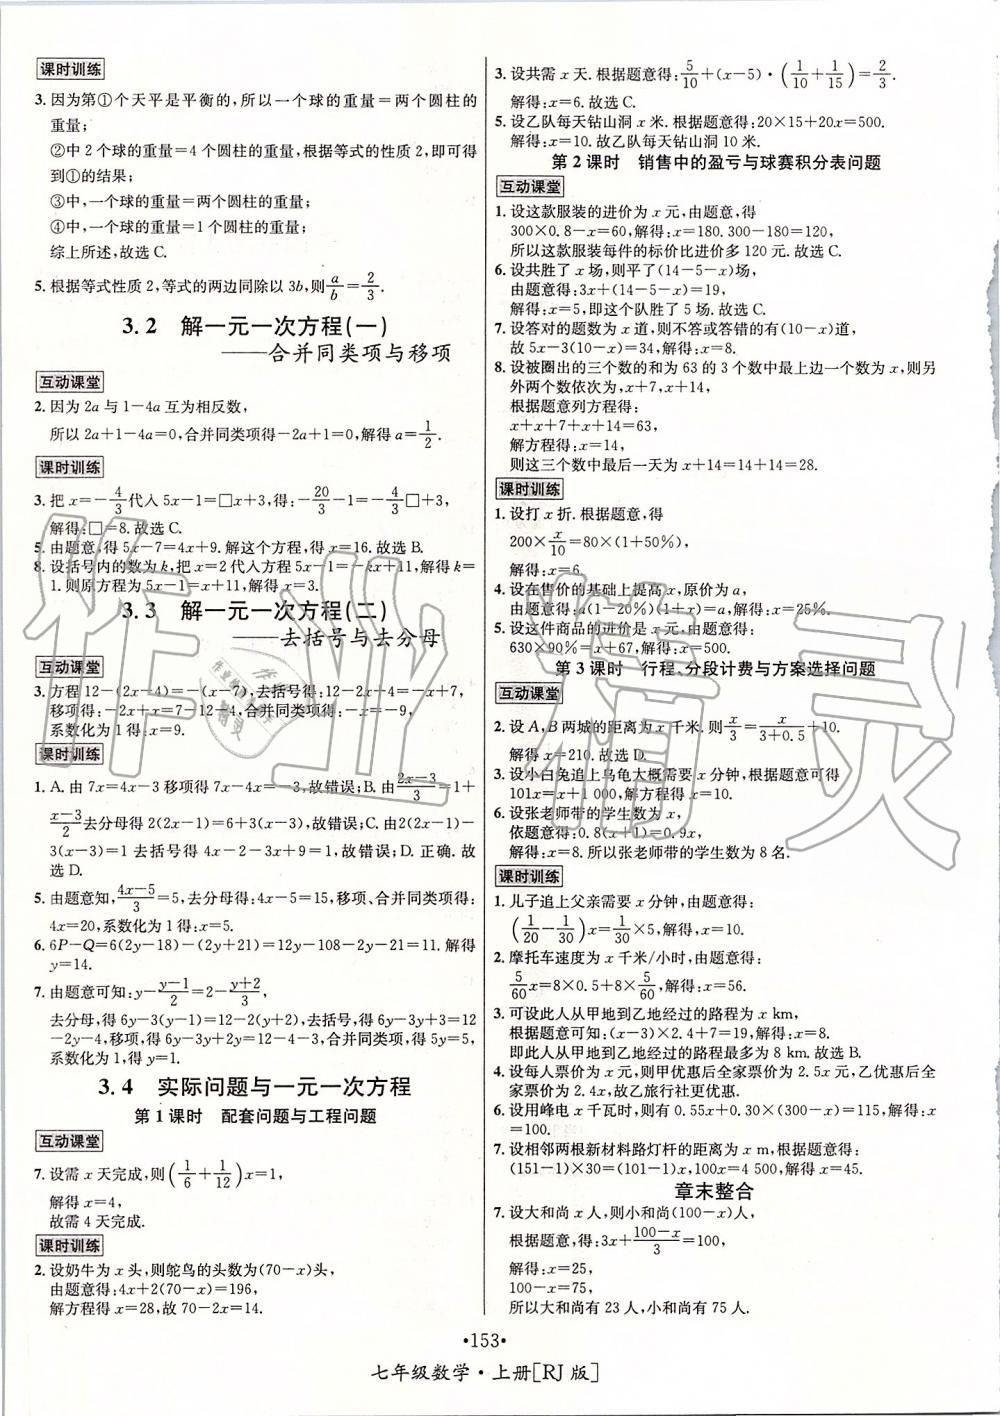 课时训练
3. 因为第①个天平是平衡的,所以一个球的重量=两个圆柱的
重量;
②中 2 个球的重量=4 个圆柱的重量,根据等式的性质 2,即可得
到①的结果;
③中,一个球的重量=两个圆柱的重量;
④中,一个球的重量=1 个圆柱的重量;
综上所述,故选 C.
5. 根据等式性质 2,等式的两边同除以 3b,则a/b=2/3.
3.2 解一元一次方程(一)
——合并同类项与移项
互动课堂
2. 因为 2a 与 1-4a 互为相反数,
所以 2a+1-4a=0,合并同类项得-2a+1=0,解得 a=1/2.
课时训练
3. 把 x=-4/3代入 5x-1=□x+3,得:-20/3-1=-4/3□+3,
解得:□=8. 故选 C.
5. 由题意,得 5x-7=4x+9. 解这个方程,得 x=16. 故选 B.
8. 设括号内的数为 k,把 x=2 代入方程 5x-1=-kx+11,解得 k=
1. 则原方程为 5x-1=-x+11,解得 x=3.
3.3 解一元一次方程(二)
——去括号与去分母
互动课堂
3. 方程 12-(2x-4)=-(x-7),去括号得:12-2x+4=-x+7,
移项得:-2x+x=7-12-4,合并同类项得:-x=-9,
系数化为 1 得:x=9.
课时训练
1. A. 由 7x=4x-3 移项得 7x-4x=-3,故错误;B. 由(2x-3)/3=1+
(x-3)/2去分母得 2(2x-1)=6+3(x-3),故错误;C. 由 2(2x-1)-
3(x-3)=1 去括号得 4x-2-3x+9=1,故错误;D. 正确. 故
选 D.
5. 由题意知,(4x-5)/3=5,去分母得:4x-5=15,移项、合并同类项得:
4x=20,系数化为 1 得:x=5.
6. 6P-Q=6(2y-18)-(2y+21)=12y-108-2y-21=11. 解得
y=14.
7. 由题意可知:y-(y-1)/2=2-(y+2)/3,
去分母,得 6y-3(y-1)=12-2(y+2),去括号,得 6y-3y+3=12
-2y-4,移项,得 6y-3y+2y=12-4-3,合并同类项,得 5y=5,
系数化为 1,得 y=1.
3.4 实际问题与一元一次方程
第 1 课时 配套问题与工程问题
互动课堂
7. 设需 x 天完成,则(1/6+1/12)x=1,
解得 x=4,
故需 4 天完成.
课时训练
2. 设奶牛为 x 头,则鸵鸟的头数为(70-x)头,
由题意得:4x+2(70-x)=196,
解方程得 x=28,故 70-2x=14.
3. 设共需 x 天. 根据题意得:5/10+(x-5)·(1/10+1/15)=2/3.
解得:x=6. 故选 C.
5. 设乙队每天钻山洞 x 米. 根据题意得:20×15+20x=500.
解得:x=10. 故乙队每天钻山洞 10 米.
第 2 课时 销售中的盈亏与球赛积分表问题
互动课堂
1. 设这款服装的进价为 x 元,由题意,得
300×0.8-x=60,解得:x=180. 300-180=120,
所以这款服装每件的标价比进价多 120 元. 故选 C.
6. 设共胜了 x 场,则平了(14-5-x)场,
由题意得:3x+(14-5-x)=19,
解得:x=5,即这个队胜了 5 场. 故选 C.
7. 设答对的题数为 x 道,则不答或答错的有(10-x)道,
故 5x-3(10-x)=34,解得:x=8.
8. 设被圈出的三个数的和为 63 的 3 个数中最上边一个数为 x,则另
外两个数依次为,x+7,x+14,
根据题意列方程得:
x+x+7+x+14=63,
解方程得:x=14,
则这三个数中最后一天为 x+14=14+14=28.
课时训练
1. 设打 x 折. 根据题意,得
200×x/10=80×(1+50%),
解得:x=6.
4. 设在售价的基础上提高 x,原价为 a,
由题意得:a(1-20%)(1+x)=a,解得:x=25%.
5. 设这件商品的进价是 x 元,由题意得:
630×90%=x+67,解得:x=500.
第 3 课时 行程、分段计费与方案选择问题
互动课堂
2. 设 A,B 两城的距离为 x 千米. 则x/3=x/(3+0.5)+10.
解得 x=210. 故选 D.
3. 设小白兔追上乌龟大概需要 x 分钟,根据题意可得
101x=x+1 000,解得:x=10.
6. 设张老师带的学生数为 x,
依题意得:0.8(x+1)=0.9x,
解得:x=8. 所以张老师带的学生数为 8 名.
课时训练
1. 儿子追上父亲需要 x 分钟,由题意得:
(1/20-1/30)x=1/30×5,解得,x=10.
2. 摩托车速度为 x 千米/小时,由题意得:
5/60x=8×0.5+8×5/60,解得:x=56.
3. 可设此人从甲地到乙地经过的路程为 x km,
根据题意可知:(x-3)×2.4+7=19,解得:x=8.
即此人从甲地到乙地经过的路程最多为 8 km. 故选 B.
4. 设每人票价为 x 元,则甲优惠后全家票价为 2.5x 元,乙优惠后全
家票价为 2.4x,故乙旅行社更优惠.
6. 设用峰电 x 千瓦时,则有 0.55x+0.30×(300-x)=115,解得:x
=100.
7. 设相邻两根新材料路灯杆的距离为 x m,根据题意得:
(151-1)×30=(101-1)x,100x=4 500,解得 x=45.
章末整合
7. 设大和尚 x 人,则小和尚(100-x)人,
根据题意,得:3x+(100-x)/3=100,
解得:x=25,
100-x=75,
所以大和尚有 23 人,小和尚有 75 人.
·153·
七年级数学·上册[RJ 版]
作业精灵